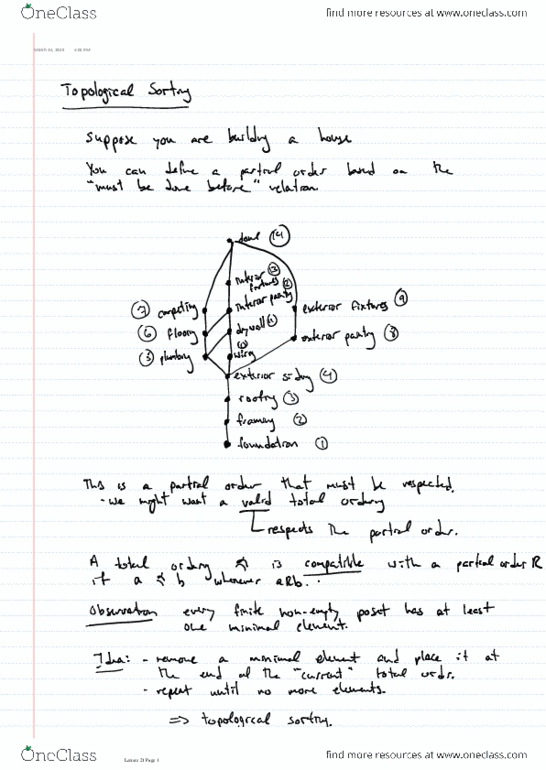 OneClass
find more resources at www.oneclass.com
Topological Sorting
Suppose you are building a house
You can define a partial order based on the
"must be done before" relation.
done (14)
interior fixtures (13)
interior painting (12)
carpeting (7)
exterior fixtures (9)
flooring (6)
drywall (11)
exterior painting (8)
plumbing (5)
wiring (10)
exterior siding (4)
roofing (3)
framing (2)
foundation (1)
This is a partial order that must be respected.
- we might want a valid total ordering
respects the partial order.
A total ordering ≼ is compatible with a partial order R
if a ≼ b whenever aRb.
Observation every finite non-empty poset has at least
one minimal element.
Idea: - remove a minimal element and place it at
the end of the "current" total order.
- repeat until no more elements.
=> topological sorting.
OneClass
Page 1
find more resources at www.oneclass.com